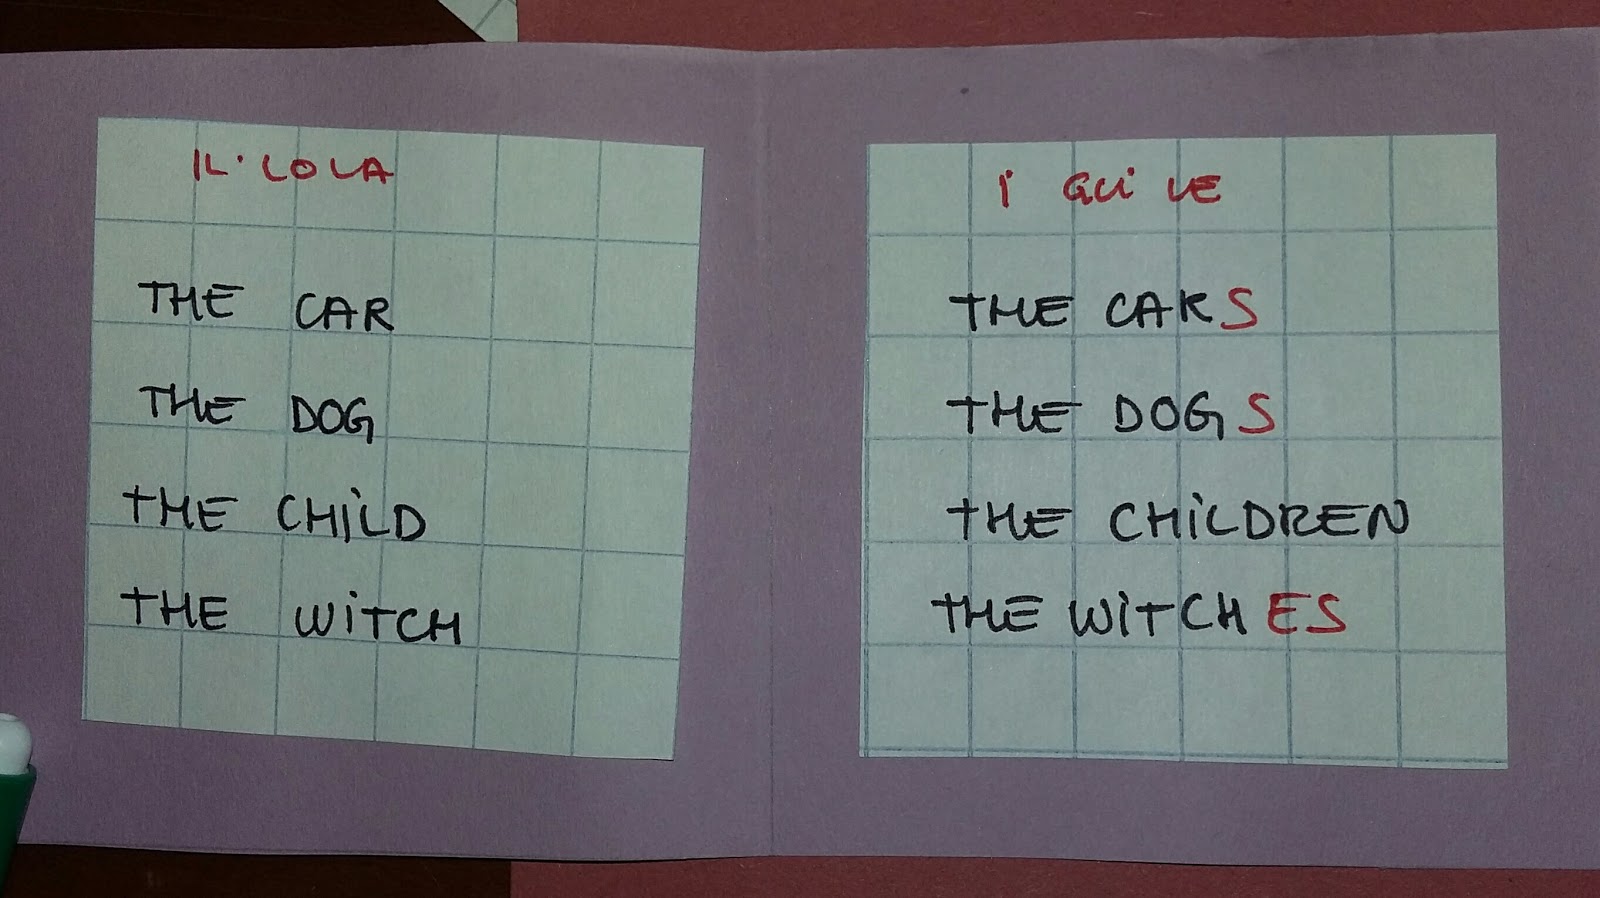 IL. LO LA
THE CAR
THE DOG
THE CHiLD
THE WiTCH
i GLi LE
THE CARS
THE DOGS
THE CHiLDREN
THE WiTCHES